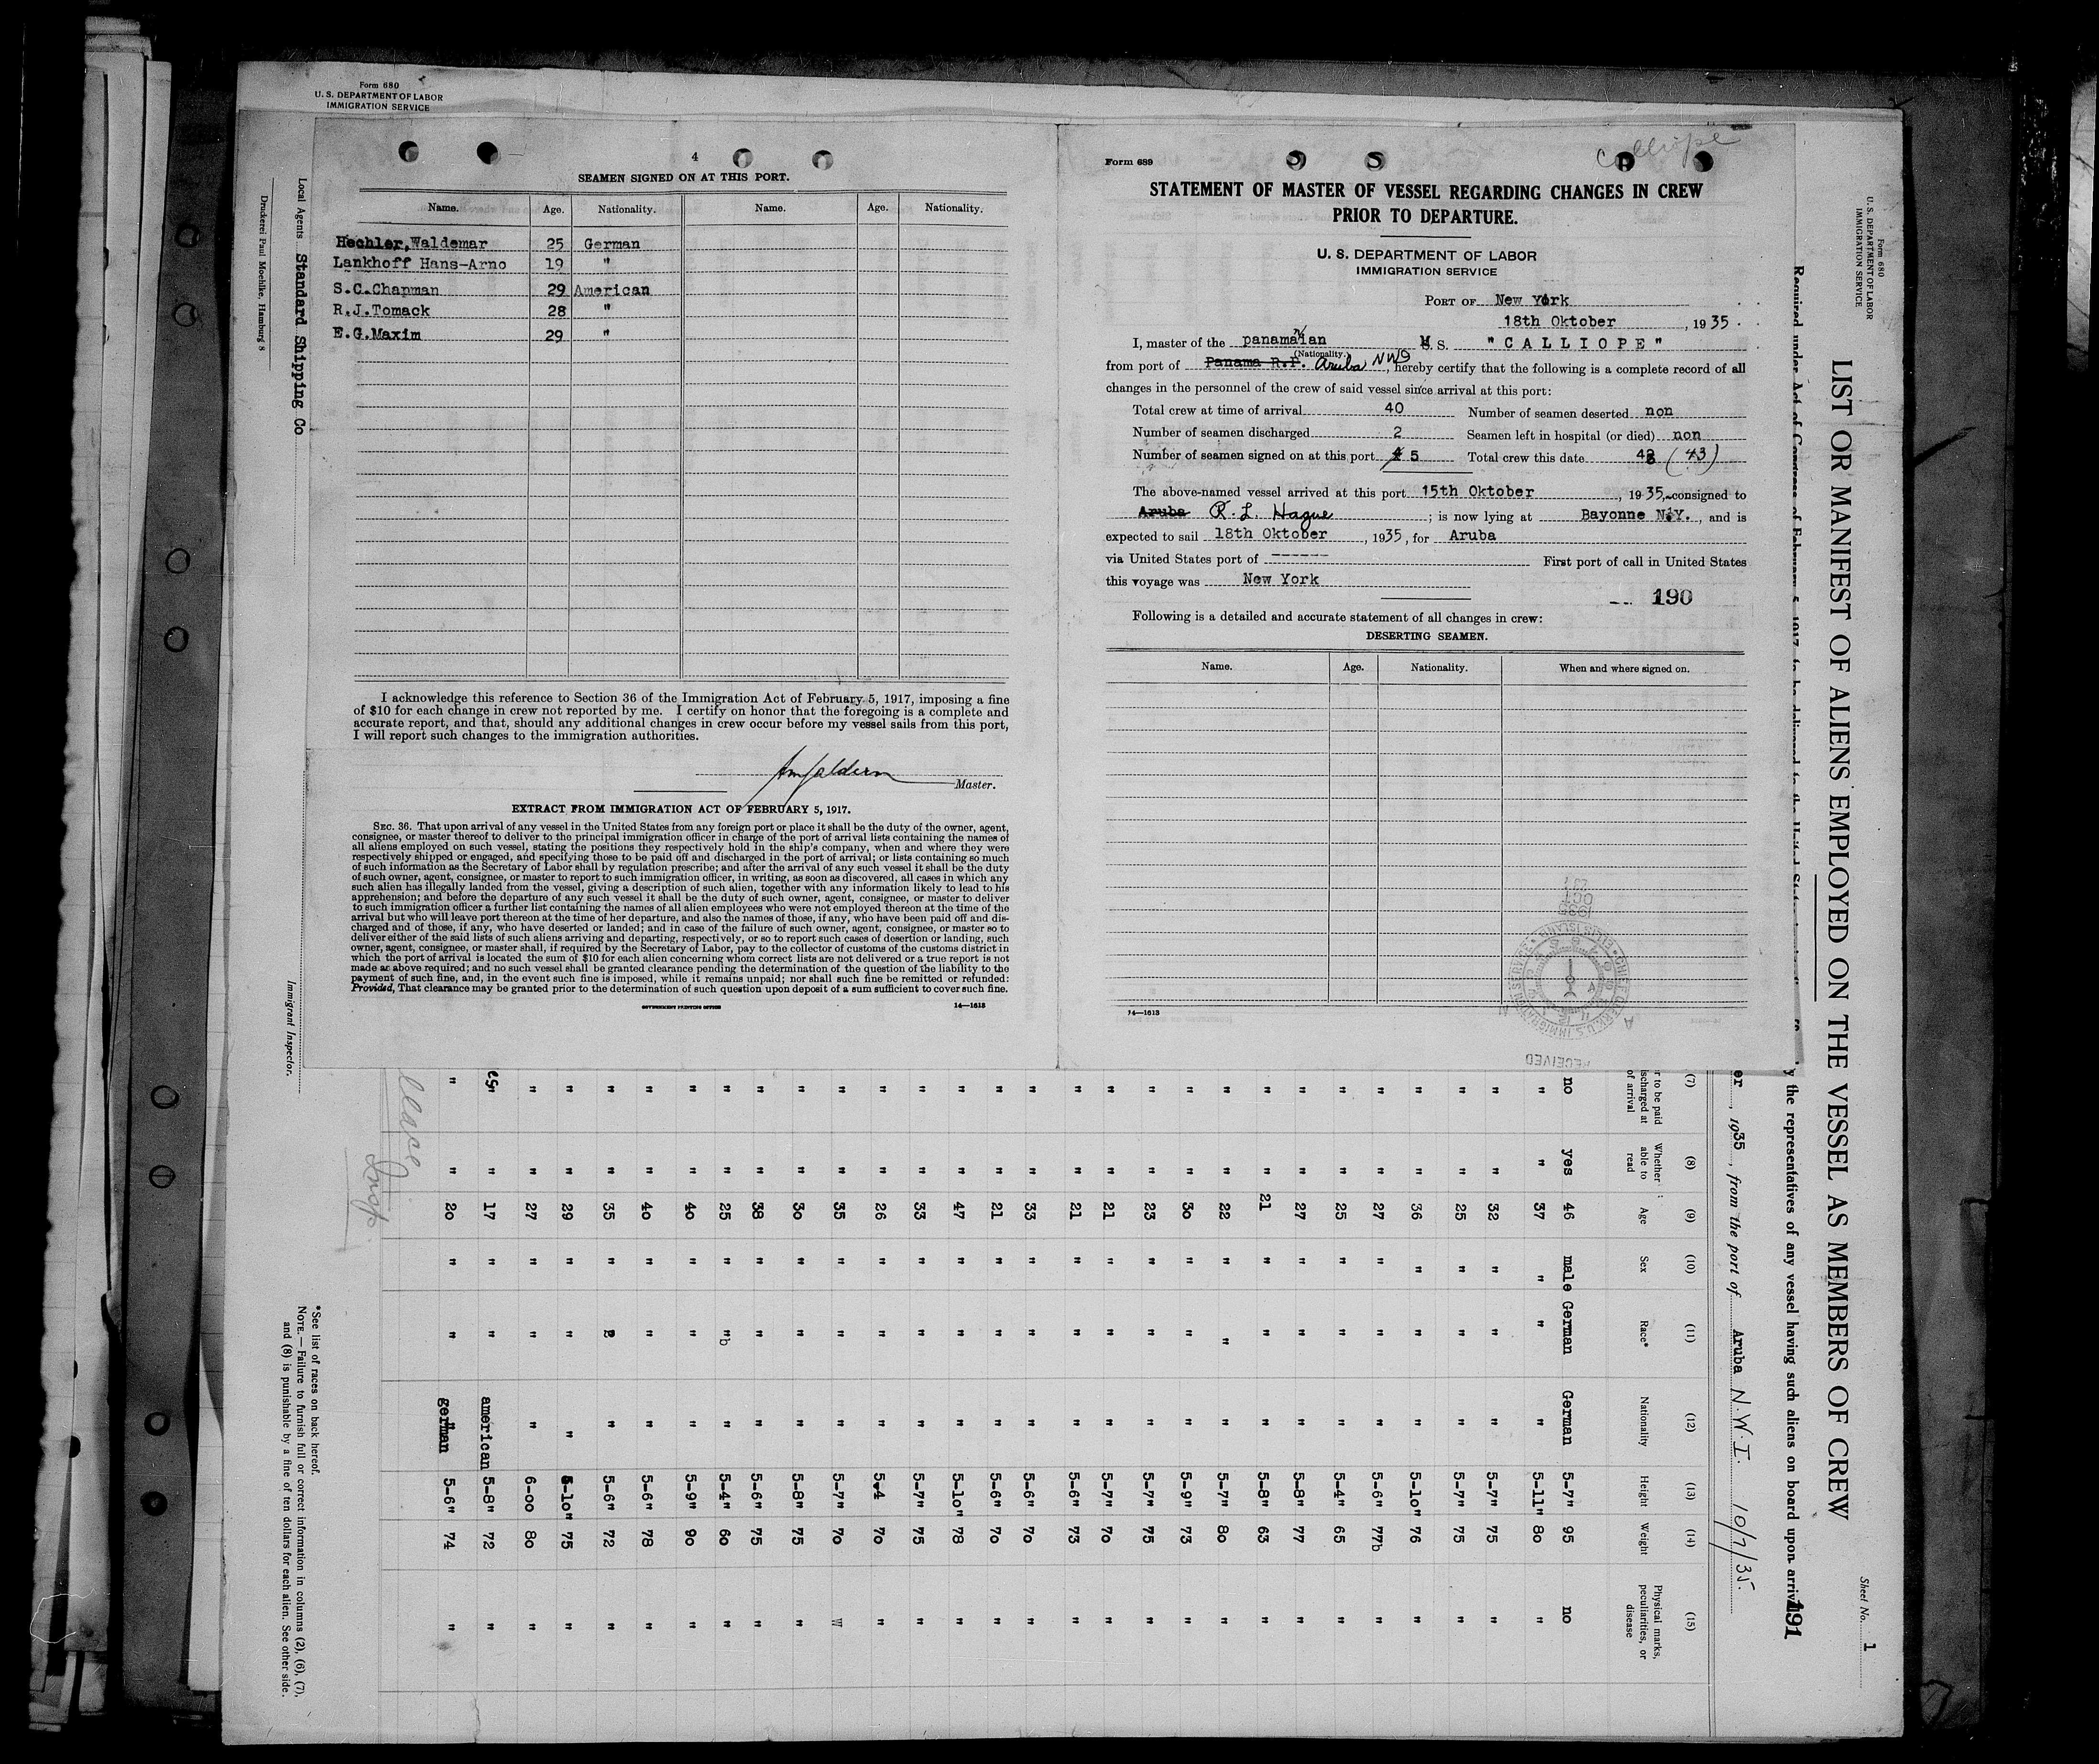 Form 680
U. S. DEPARTMENT OF LABOR
IMMIGRATION SERVICE
Local Agents Standard Shipping Co
Immigrant Inspector.
Druckerei Paul Moehlke, Hamburg 8
4
SEAMEN SIGNED ON AT THIS PORT.
Name. Age. Nationality. Name. Age. Nationality.
Hechler, Waldemar 25 German
Lankhoff Hans-Arno 19 "
S.C.Chapman 29 American
R.J.Tomack 28 "
E.G.Maxim 29 "
I acknowledge this reference to Section 36 of the Immigration Act of February 5, 1917, imposing a fine
of $10 for each change in crew not reported by me. I certify on honor that the foregoing is a complete and
accurate report, and that, should any additional changes in crew occur before my vessel sails from this port,
I will report such changes to the immigration authorities.
Master.
EXTRACT FROM IMMIGRATION ACT OF FEBRUARY 5, 1917.
SEC. 36. That upon arrival of any vessel in the United States from any foreign port or place it shall be the duty of the owner, agent,
consignee, or master thereof to deliver to the principal immigration officer in charge of the port of arrival lists containing the names of
all aliens employed on such vessel, stating the positions they respectively hold in the ship's company, when and where they were
respectively shipped or engaged, and specifying those to be paid off and discharged in the port of arrival; or lists containing so much
of such information as the Secretary of Labor shall by regulation prescribe; and after the arrival of any such vessel it shall be the duty
of such owner, agent, consignee, or master to report to such immigration officer, in writing, as soon as discovered, all cases in which any
such alien has illegally landed from the vessel, giving a description of such alien, together with any information likely to lead to his
apprehension; and before the departure of any such vessel it shall be the duty of such owner, agent, consignee, or master to deliver
to such immigration officer a further list containing the names of all alien employees who were not employed thereon at the time of the
arrival but who will leave port thereon at the time of her departure, and also the names of those, if any, who have been paid off and dis-
charged and of those, if any, who have deserted or landed; and in case of the failure of such owner, agent, consignee, or master so to
deliver either of the said lists of such aliens arriving and departing, respectively, or so to report such cases of desertion or landing, such
owner, agent, consignee, or master shall, if required by the Secretary of Labor, pay to the collector of customs of the customs district in
which the port of arrival is located the sum of $10 for each alien concerning whom correct lists are not delivered or a true report is not
made as above required; and no such vessel shall be granted clearance pending the determination of the question of the liability to the
payment of such fine, and, in the event such fine is imposed, while it remains unpaid; nor shall such fine be remitted or refunded:
Provided, That clearance may be granted prior to the determination of such question upon deposit of a sum sufficient to cover such fine.
GOVERNMENT PRINTING OFFICE 14—1613
Calliope
Form 689
STATEMENT OF MASTER OF VESSEL REGARDING CHANGES IN CREW
PRIOR TO DEPARTURE.
U. S. DEPARTMENT OF LABOR
IMMIGRATION SERVICE
PORT OF New York
18th Oktober, 1935.
I, master of the panamanian M.S. "CALLIOPE"
(Nationality.)
from port of Panama R.P. Aruba NWI, hereby certify that the following is a complete record of all
changes in the personnel of the crew of said vessel since arrival at this port:
Total crew at time of arrival 40 Number of seamen deserted non
Number of seamen discharged 2 Seamen left in hospital (or died) non
Number of seamen signed on at this port 4 5 Total crew this date 43 (43)
The above-named vessel arrived at this port 15th Oktober, 1935, consigned to
Aruba R. L. Hague; is now lying at Bayonne N.Y., and is
expected to sail 18th Oktober, 1935, for Aruba
via United States port of ------ First port of call in United States
this voyage was New York
190
Following is a detailed and accurate statement of all changes in crew:
DESERTING SEAMEN.
Name. Age. Nationality. When and where signed on.
14—1613
RECEIVED
CHIEF CLERK U.S. IMMIGRATION SERVICE ELLIS ISLAND
OCT
1935
Form 680
U. S. DEPARTMENT OF LABOR
IMMIGRATION SERVICE
Sheet No. 1
LIST OR MANIFEST OF ALIENS EMPLOYED ON THE VESSEL AS MEMBERS OF CREW
y the representatives of any vessel having such aliens on board upon arriv
191
er, 1935, from the port of Aruba N.W.I. 10/7/35.
(7) (8) (9) (10) (11) (12) (13) (14) (15)
r to be paid
ischarged at
of arrival
Whether able to read
Age
Sex
Race*
Nationality
Height
Weight
Physical marks, peculiarities, or disease
no yes 46 male German German 5-7" 95 no
" " 37 " " " 5-11" 80 "
" " 32 " " " 5-7" 75 "
" " 25 " " " 5-7" 75 "
" " 36 " " " 5-10" 76 "
" " 27 " " " 5-6" 77b "
" " 25 " " " 5-4" 65 "
" " 27 " " " 5-8" 77 "
" " 21 " " " 5-8" 63 "
" " 22 " " " 5-7" 80 "
" " 30 " " " 5-9" 73 "
" " 23 " " " 5-7" 75 "
" " 21 " " " 5-7" 70 "
" " 21 " " " 5-6" 73 "
" " 33 " " " 5-6" 70 "
" " 21 " " " 5-6" 70 "
" " 47 " " " 5-10" 78 "
" " 33 " " " 5-7" 75 "
" " 26 " " " 5-4 70 "
" " 35 " " " 5-7" 70 "
" " 30 " " " 5-8" 75 "
" " 38 " " " 5-6" 75 "
" " 25 " "b " 5-4" 60 "
" " 40 " " " 5-9" 90 "
" " 40 " " " 5-6" 78 "
" " 35 " " " 5-6" 72 "
" " 29 " " " 5-10" 75 "
" " 27 " " " 6-00 80 "
" 17 " " american 5-8" 72 "
" " 20 " " german 5-6" 74 "
*See list of races on back hereof.
NOTE.—Failure to furnish full or correct information in columns (2), (6), (7),
and (8) is punishable by a fine of ten dollars for each alien. See other side.